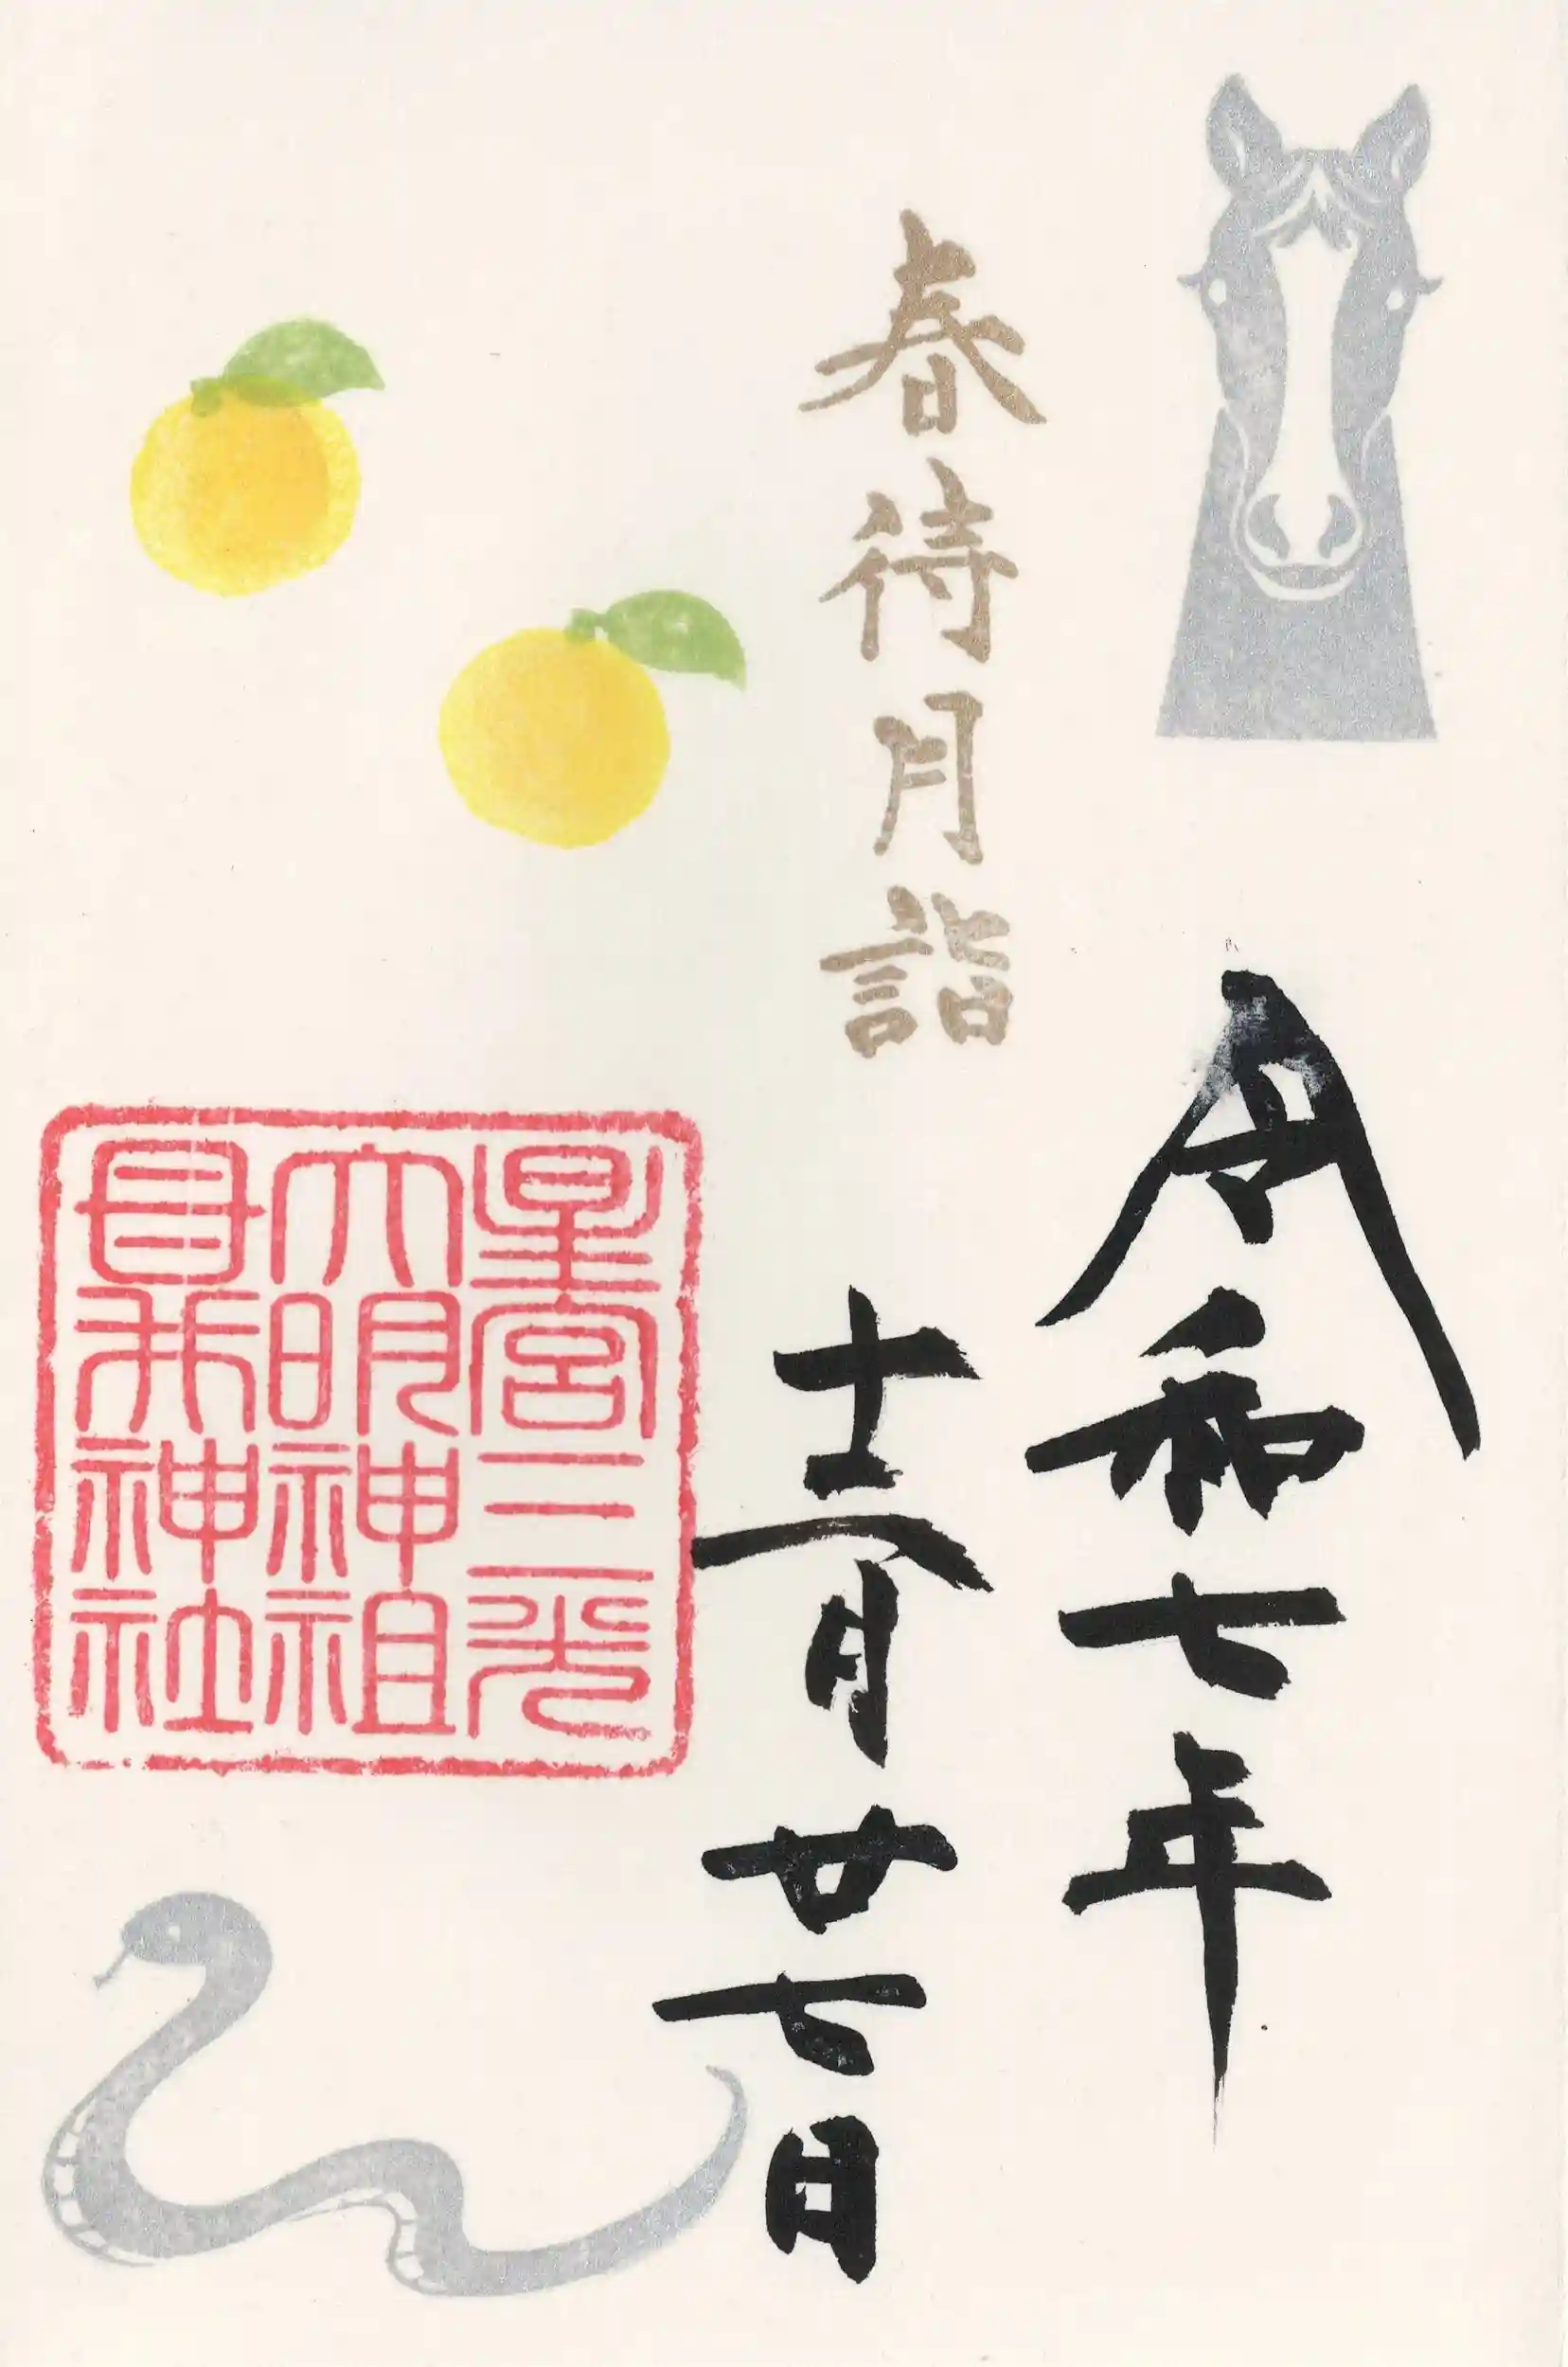 春待月詣
令和七年
十二月廿七日
星宮三光
大明神祖
母井神社